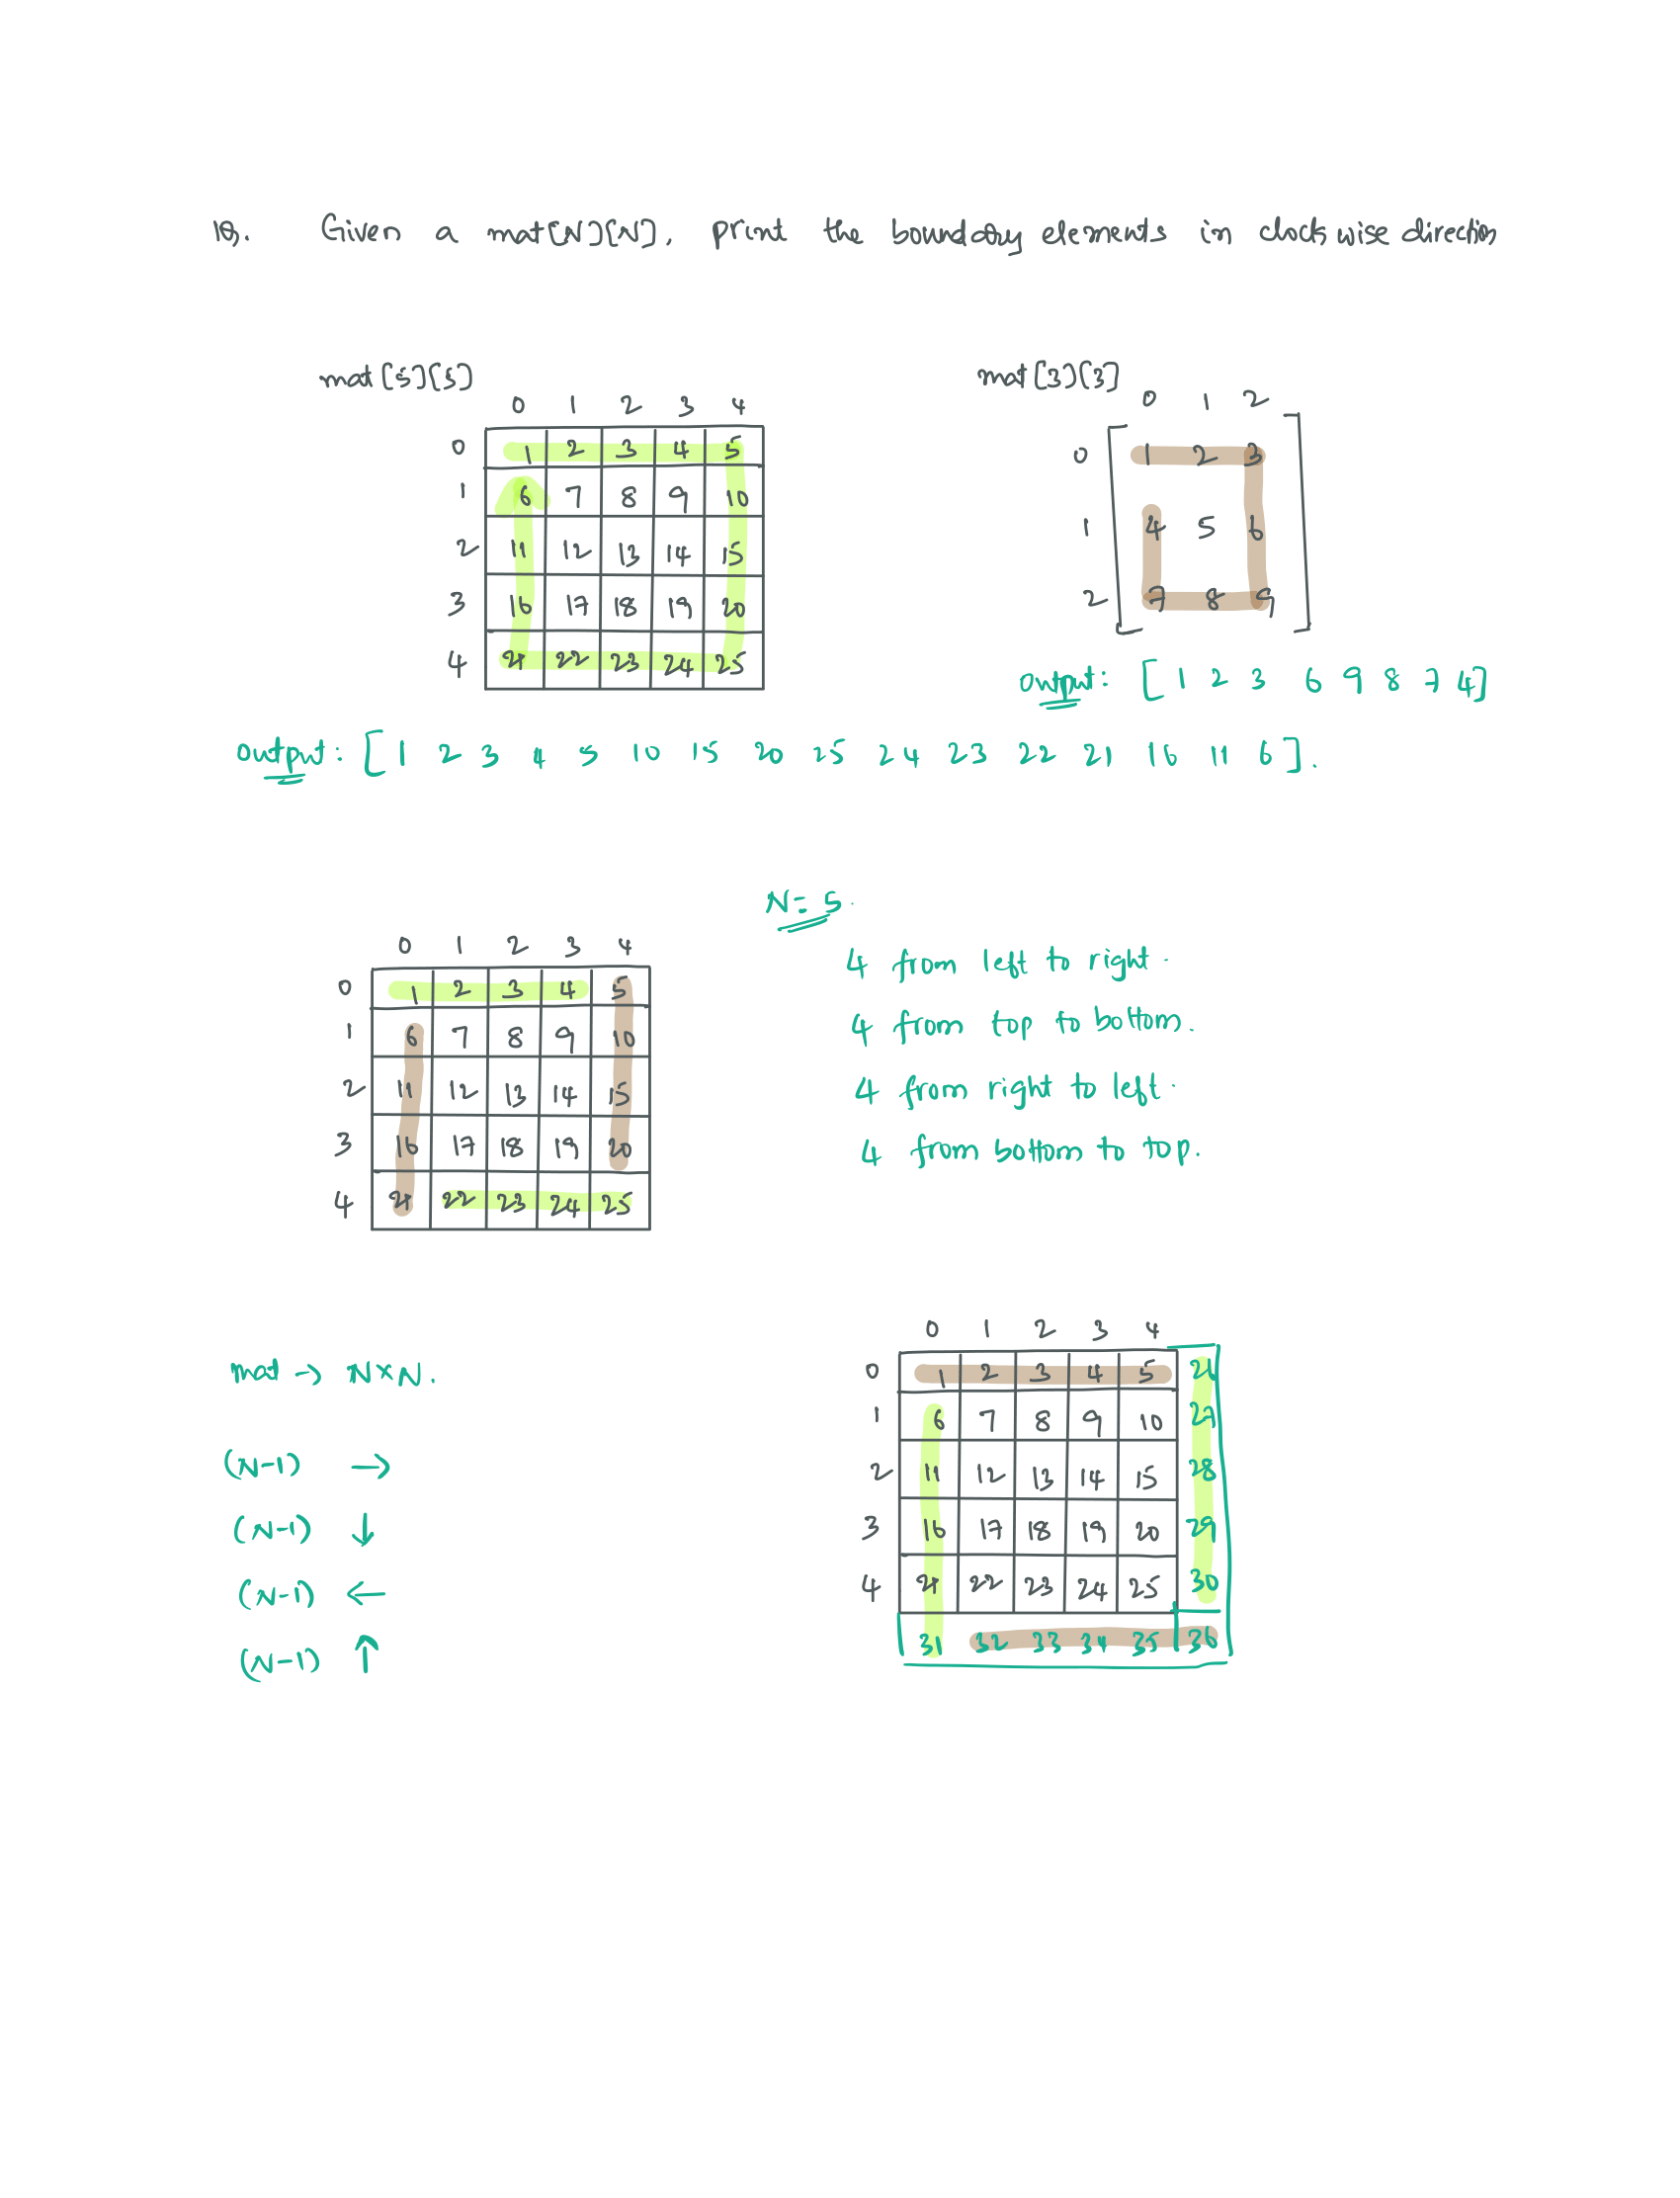 1Q. Given a mat[N][N], print the boundary elements in clockwise direction
mat[5][5]
0 1 2 3 4
0 1 2 3 4 5
1 6 7 8 9 10
2 11 12 13 14 15
3 16 17 18 19 20
4 21 22 23 24 25
output: [1 2 3 4 5 10 15 20 25 24 23 22 21 16 11 6].
mat[3][3]
0 1 2
0 1 2 3
1 4 5 6
2 7 8 9
output: [1 2 3 6 9 8 7 4]
N = 5.
0 1 2 3 4
0 1 2 3 4 5
1 6 7 8 9 10
2 11 12 13 14 15
3 16 17 18 19 20
4 21 22 23 24 25
4 from left to right.
4 from top to bottom.
4 from right to left.
4 from bottom to top.
mat → N×N.
(N-1) →
(N-1) ↓
(N-1) ←
(N-1) ↑
0 1 2 3 4
0 1 2 3 4 5 26
1 6 7 8 9 10 27
2 11 12 13 14 15 28
3 16 17 18 19 20 29
4 21 22 23 24 25 30
31 32 33 34 35 36